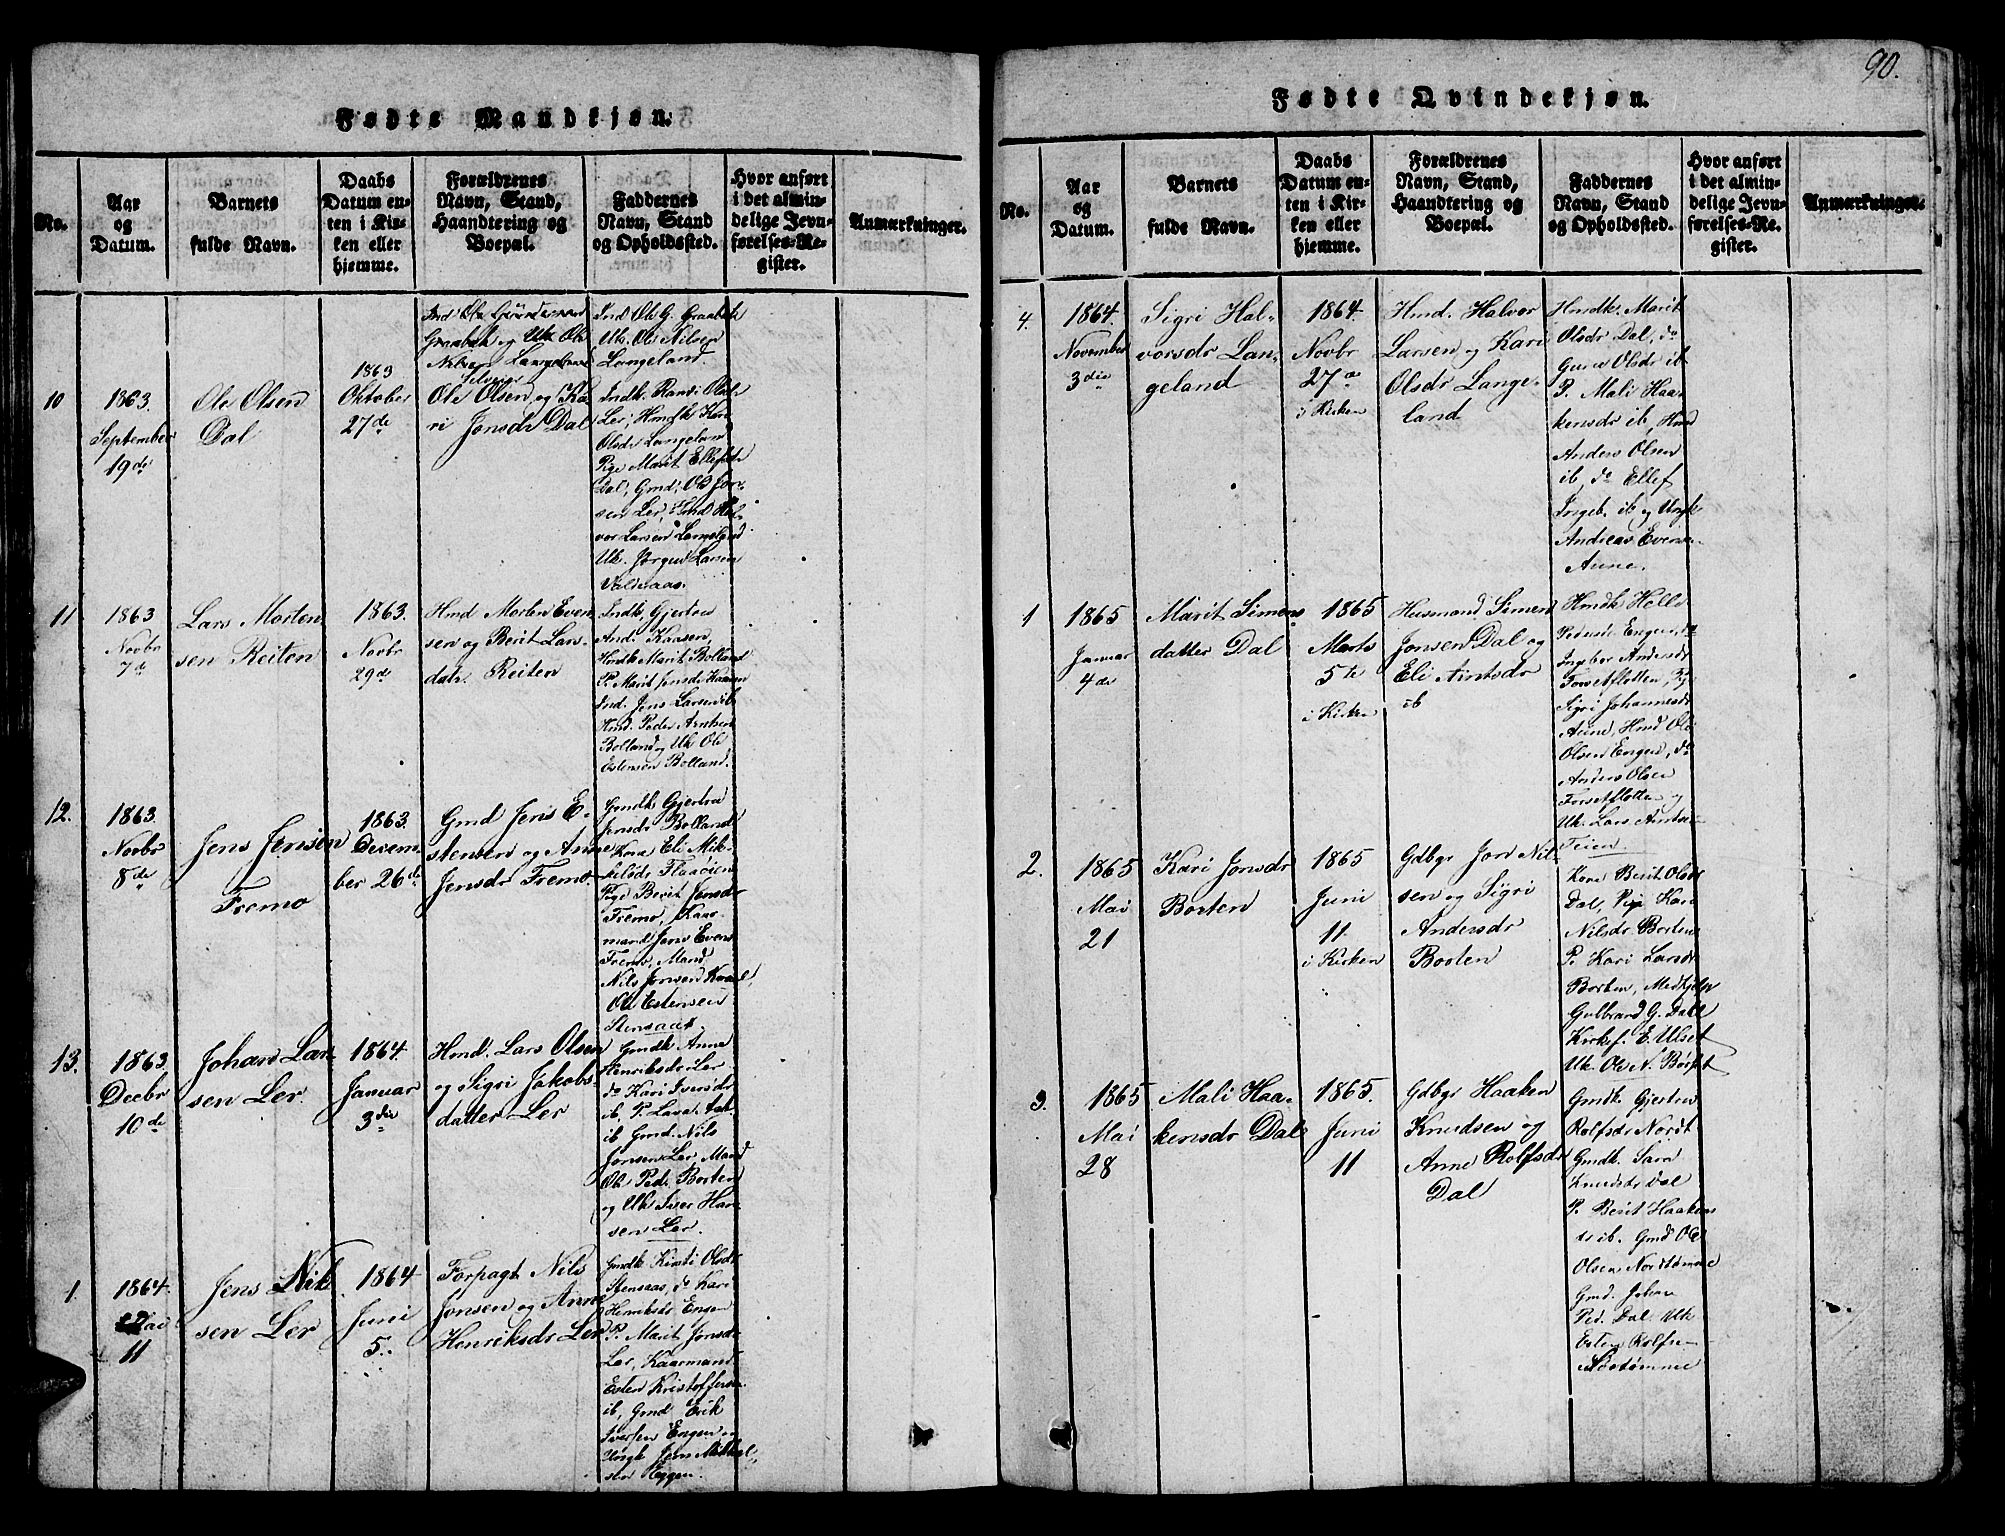 90.
Fødte Mandkjøn.
No.
Aar
og
Datum.
Barnets
fulde Navn.
Daabs
Datum en-
ten i Kir-
ken eller
hjemme.
Forældrenes
Navn, Stand,
Haandtering og
Boepæl.
Faddernes
Navn, Stand
og Opholdssted.
Hvor anført
i det almin-
delige Jevn-
førelses-Re-
gister.
Anmærkninger.
Graabak og Uk Ole
Ind Ole G. Graabak
Uk. Ole Nilsen
Langeland.
10
1863.
September
19de
Ole Olsen
Dal
1863
Oktober
27de
Ole Olsen og Ka
ri Jonsdr Dal
Indk. Randi Olsdr
Ler, Hmdk Kari
Olsdr Langeland
Pige Marit Ellefsdr
Dal, Gmd. Ole Jon-
sen Ler, Hmd Hal
vor Larsen Langeland
Uk. Jørgen Larsen
11
1863
Novbr
7de
Lars Morten
sen Reiten
1863.
Novbr
29de
Hmd Morten Even
sen og Berit Lars
datr. Reiten
Indk, Gjertru
And. Kaasen,
Hmdk Marit Bolland
P. Marit Jensdr Kaasen
Ind. Jens Larsen ib
Hmd. Peder Arntsen
Bolland og Uk Ole
Estensen Bolland.
12.
1863.
Novbr
8de
Jens Jensen
Fremo
1863.
Decem
ber 26de
Gmd Jens E-
stensen og Anne
Jensdr Fremo
Gmdk Gjertru
Jensdr Bolland
Kone Eli Mik-
kelsdr Flaaøien
Pige Berit Jensdr
Fremo, Kaar
mand Jens Evens
Fremo, Mand
Nils Jonsen
Ole Estensen
Stensaas.
13.
1863.
Decbr
10de
Johan Lar
sen Ler.
1864.
Januar
3die
Hmd. Lars Olsen
og Sigri Jakobs-
datter Ler
Gmdk Anne
Henriksdr Ler
do Kari Iversdr
ib, P. Lava Jak
ib Gmd. Nils
Jonsen Ler, Mand
Ole Peds. Borten
og Uk Iver Han
sen Ler.
1.
1864.
Mai
11
Jens Nil
sen Ler
1864
Juni
5.
Forpagt Nils
Jonsen og Anne
Henriksdr Ler
Gmdk Kirsti Olsdr
Stensaas, do Kari
Henriksdr Engen
P. Marit Jonsdr
Ler, Kaarmand
Esten Kristoffersen
ib, Gmd Erik
Iversen Engen og
Ungk Jens Mikkel
sen Eggen.
Fødte Qvindekjøn.
No.
Aar
og
Datum.
Barnets
fulde Navn.
Daabs
Datum en-
ten i Kir-
ken eller
hjemme.
Forældrenes
Navn, Stand,
Haandtering og
Boepæl.
Faddernes
Navn, Stand
og Opholdssted.
Hvor anført
i det almin-
delige Jevn-
førelses-Re-
gister.
Anmærkninger.
4.
1864.
November
3die
Sigri Hal-
vorsdr Lan-
geland
1864.
Novbr
27de
i Kirken
Hmd. Halvor
Larsen og Kari
Olsdr Lange-
land
Hmdk. Marit
Olsdr Dal, do
Guru Olsdr ib
P. Mali Haa-
kensdr ib, Hmd
Anders Olsen
ib, do Ellef
Ingeb. ib og Ungk
Andreas Evens.
Aune.
1
1865
Januar
4de
Marit Simons
datter Dal
1865
Marts
5te
i Kirken
Husmand Simen
Jonsen Dal og
Eli Arntsdr
ib
Hmdk
Pedersdr Engen, do
Ingbor Andersdr
Forsetflotten, Pi.
Sigri Johannesdr
Aune, Hmd Ole
Olsen Engen, do
Anders Olsen
Forsetflotten og
Uk. Lars Arntsen
Teien
2.
1865
Mai
21
Kari Jonsdr
Borten
1865
Juni
11.
i Kirken
Gdbgr Jon Nil-
sen og Sigri
Andersdr
Borten
Kone Berit Olsdr
Dal, Pige Kari
Nilsdr Borten
P. Kari Larsdr
Borten, Medhjelp
Gulbrand G. Dahl
Kirkes. E. Ulset
Uk. Ole N. Borten
3.
1865
Mai
28
Mali Haa-
kensdr Dal
1865.
Juni
11
Gdbgr Haaken
Knudsen og
Anne Rolfsdr
Dal
Gmdk. Gjertru
Rolfsdr Nordt
Gmdk. Sara
Knudsdr Dal
P. Berit Haakens
dr ib. Gmd Ole
Olsen Nordtømme
Gmd. Johan
Ped. Dal Uk
Esten Rolfse
Nordtømme